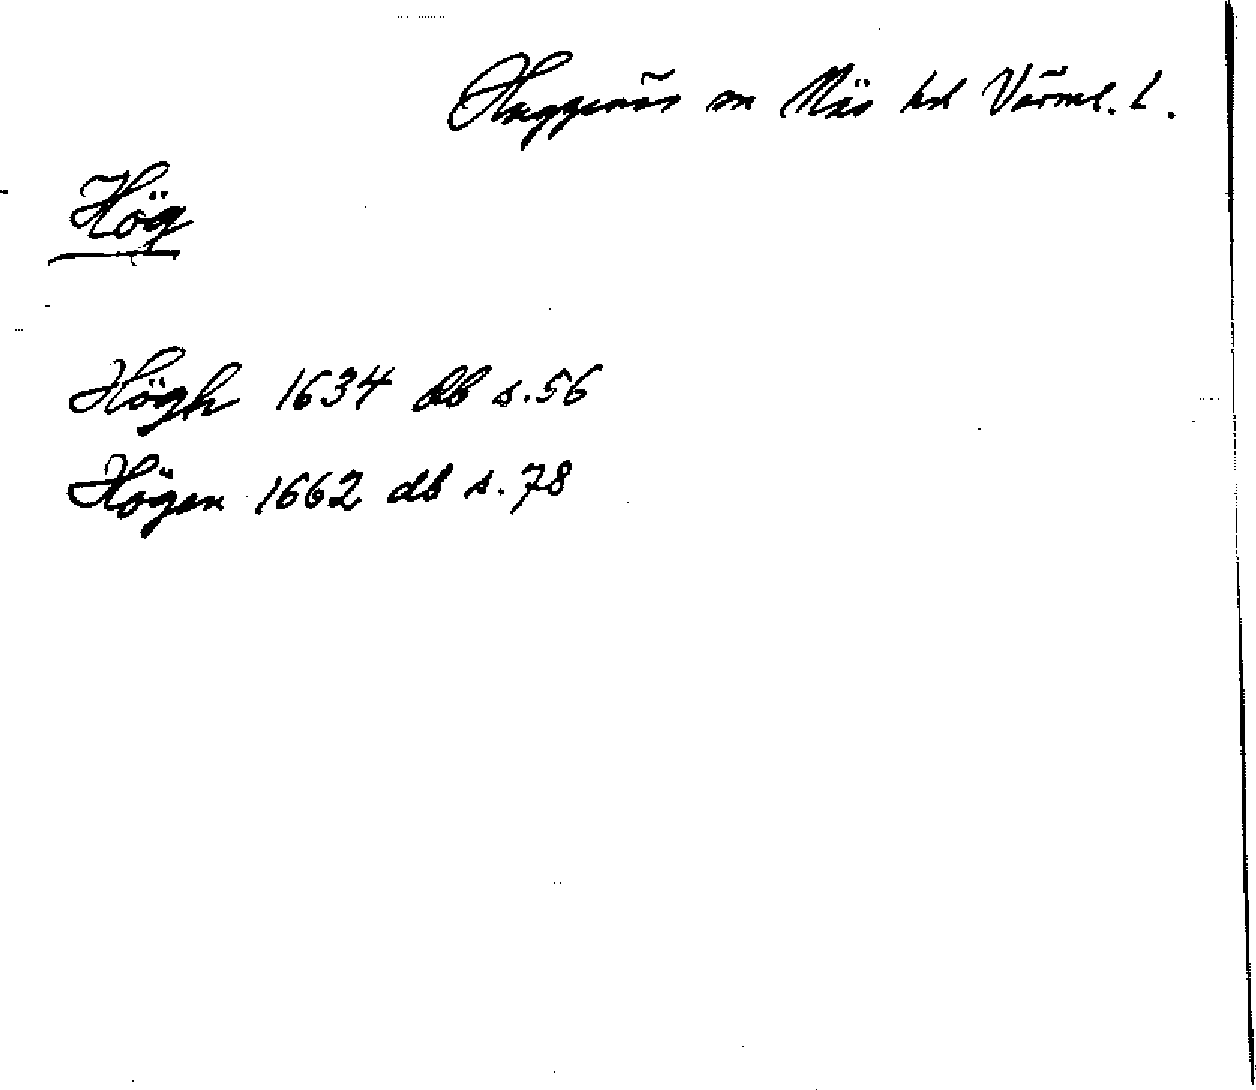 Huggenäs sn Näs hd Värml. l.
Hög
Högh 1634 db s. 56
Högen 1662 db s. 78